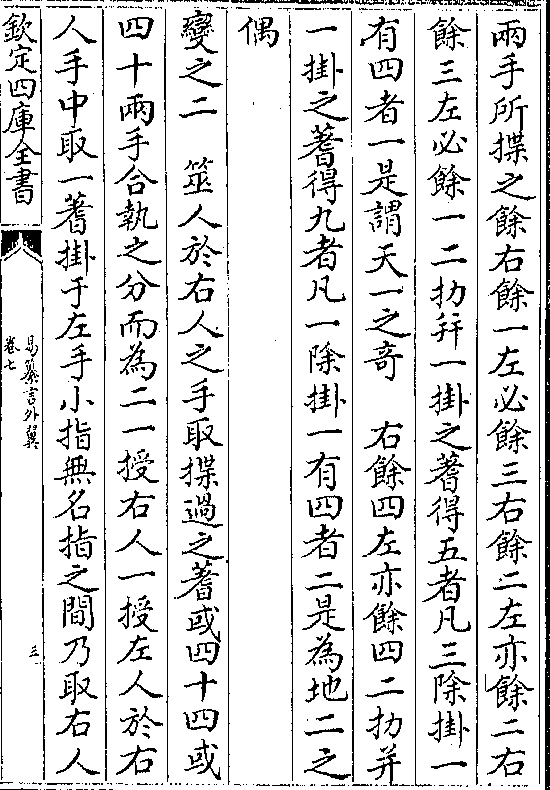 兩手所揲之餘右餘一左必餘三右餘二左亦餘二右
餘三左必餘一二扐并一掛之蓍得五者凡三除掛一
有四者一是謂天一之奇　右餘四左亦餘四二扐并
一掛之蓍得九者凡一除掛一有四者二是為地二之
偶
變之二　筮人於右人之手取揲過之蓍或四十四或
四十兩手合執之分而為二一授右人一授左人於右
人手中取一蓍掛于左手小指無名指之間乃取右人
欽定四庫全書
易纂言外翼
卷七
三